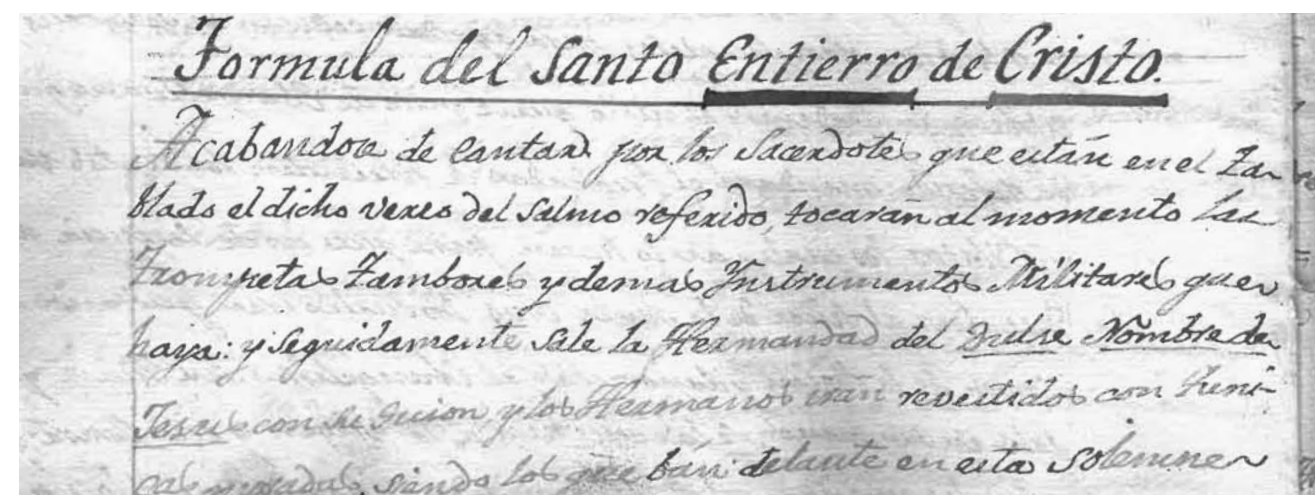 Formula del Santo Entierro de Cristo.
Acabandose de Cantar por los Sacerdotes que están en el Ta-
blado el dicho verso del Salmo referido, tocarán al momento las
Trompetas Tambores y demas Ynstrumentos Militares que
haya: y Seguidamente sale la Hermandad del Dulse Nombre de
Jesus con su Guion, y los Hermanos irán revestidos con Tuni-
cas moradas, siendo los que bán delante en esta Solemne